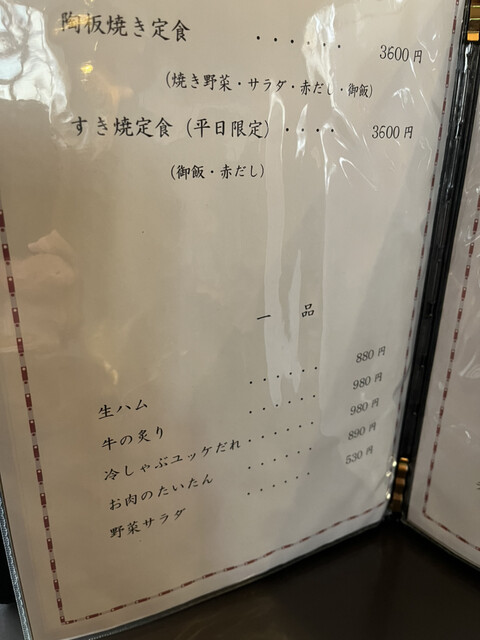 陶板焼き定食 ・・・・・・ 3600円
(焼き野菜・サラダ・赤だし・御飯)
すき焼定食(平日限定)・・・・ 3600円
(御飯・赤だし)
一 品
生ハム ・・・・・・ 880円
牛の炙り ・・・・・・ 980円
冷しゃぶユッケだれ・・・・・・ 980円
お肉のたいたん ・・・・・・ 890円
野菜サラダ ・・・・・・ 530円